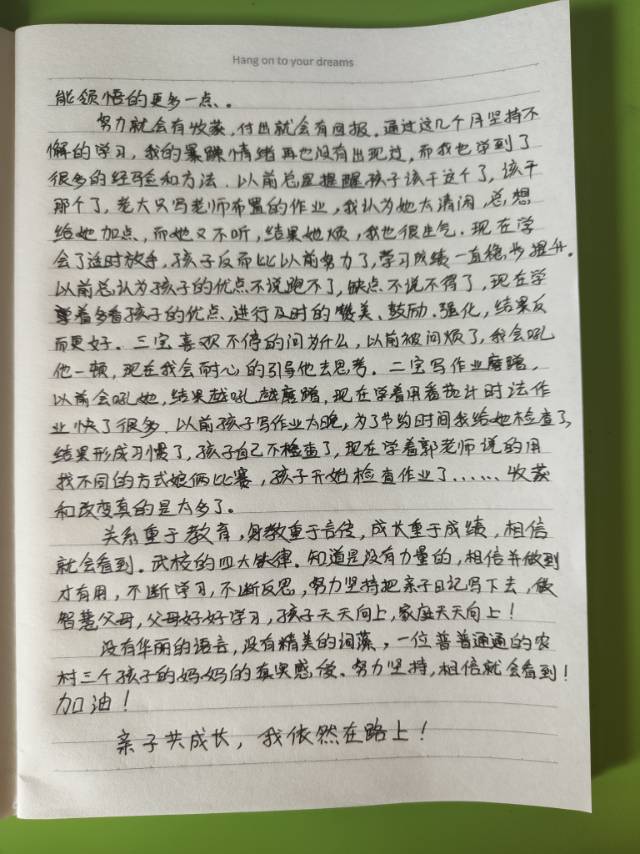 Hang on to your dreams
能领悟的更多一点、。
努力就会有收获,付出就会有回报。通过这几个月坚持不
懈的学习,我的暴躁情绪再也没有出现过,而我也学到了
很多的经验和方法。以前总是提醒孩子该干这个了,该干
那个了,老大只写老师布置的作业,我认为她太清闲,总想
给她加点,而她又不听,结果她烦,我也很生气。现在学
会了适时放手,孩子反而比以前努力了,学习成绩一直稳步提升。
以前总认为孩子的优点不说跑不了,缺点不说不得了,现在学
着多看孩子的优点,进行及时的赞美、鼓励、强化,结果反
而更好。三宝喜欢不停的问为什么,以前被问烦了,我会吼
他一顿,现在我会耐心的引导他去思考。二宝写作业磨蹭,
以前会吼她,结果越吼越磨蹭,现在学着用番茄计时法作
业快了很多。以前孩子写作业太晚,为了节约时间我给她检查了,
结果形成习惯了,孩子自己不检查了,现在学着郭老师说的用
找不同的方式娘俩比赛,孩子开始检查作业了……收获
和改变真的是太多了。
关系重于教育,身教重于言传,成长重于成绩,相信
就会看到。武校的四大铁律。知道是没有力量的,相信并做到
才有用,不断学习,不断反思,努力坚持把亲子日记写下去,做
智慧父母,父母好好学习,孩子天天向上,家庭天天向上!
没有华丽的语言,没有精美的词藻,一位普普通通的农
村三个孩子的妈妈的真实感悟。努力坚持,相信就会看到!
加油!
亲子共成长,我依然在路上!